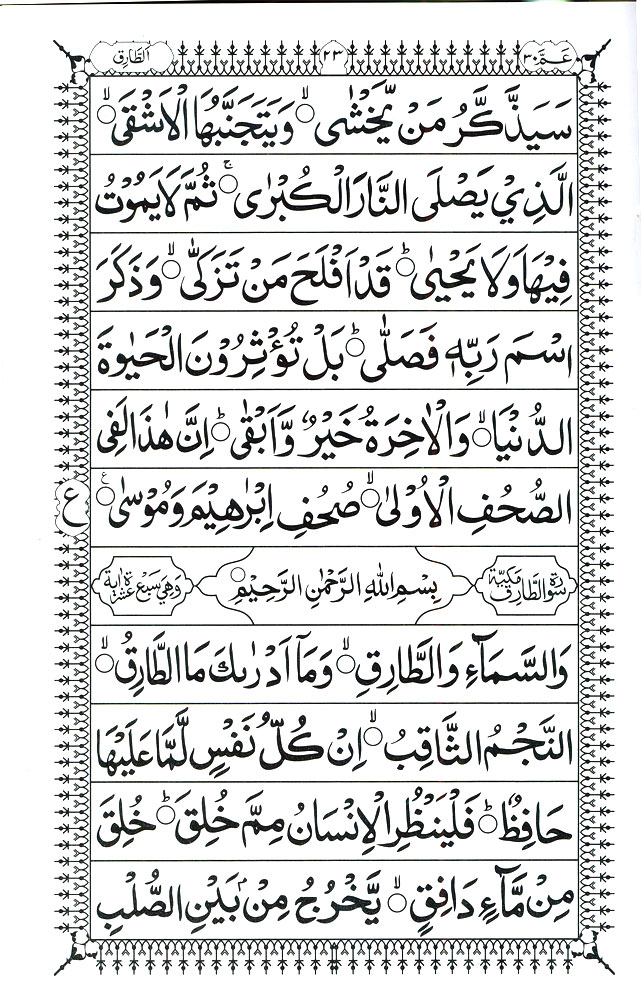 عَمَّ ٣٠ ٢٣ الطَّارِق
سَيَذَّكَّرُ مَنْ يَّخْشٰى ۙ وَيَتَجَنَّبُهَا الْاَشْقَى ۙ
الَّذِيْ يَصْلَى النَّارَ الْكُبْرٰى ۚ ثُمَّ لَا يَمُوْتُ
فِيْهَا وَلَا يَحْيٰى ؕ قَدْ اَفْلَحَ مَنْ تَزَكّٰى ۙ وَذَكَرَ
اسْمَ رَبِّهٖ فَصَلّٰى ؕ بَلْ تُؤْثِرُوْنَ الْحَيٰوةَ
الدُّنْيَا ۙ وَالْاٰخِرَةُ خَيْرٌ وَّاَبْقٰى ؕ اِنَّ هٰذَا لَفِى
الصُّحُفِ الْاُوْلٰى ۙ صُحُفِ اِبْرٰهِيْمَ وَمُوْسٰى ۠ ع
سُوْرَةُ الطَّارِقِ مَكِّيَّةٌ بِسْمِ اللّٰهِ الرَّحْمٰنِ الرَّحِيْمِ وَهِيَ سَبْعَ عَشْرَةَ اٰيَةً
وَالسَّمَآءِ وَالطَّارِقِ ۙ وَمَآ اَدْرٰىكَ مَا الطَّارِقُ ۙ
النَّجْمُ الثَّاقِبُ ۙ اِنْ كُلُّ نَفْسٍ لَّمَّا عَلَيْهَا
حَافِظٌ ؕ فَلْيَنْظُرِ الْاِنْسَانُ مِمَّ خُلِقَ ؕ خُلِقَ
مِنْ مَّآءٍ دَافِقٍ ۙ يَّخْرُجُ مِنْۢ بَيْنِ الصُّلْبِ